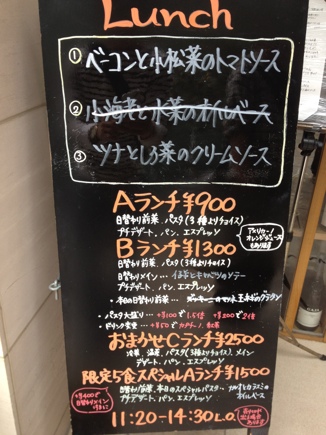 Lunch
① ベーコンと小松菜のトマトソース
② 小海老と水菜の
③ ツナとしろ菜のクリームソース
Aランチ ¥900
日替わり前菜、パスタ(3種よりチョイス)
プチデザート、パン、エスプレッソ
Bランチ ¥1300
日替わり前菜、パスタ(3種よりチョイス)
日替わりメイン…
プチデザート、パン、エスプレッソ
・本日の日替わり前菜…
・パスタ大盛り…+¥100で1.5倍 +¥200で2倍
・ドリンク変更…+¥50でカプチーノ、紅茶
おまかせCランチ ¥2500
冷菜、温菜、パスタ(3種よりチョイス)、メイン
デザート、パン、エスプレッソ
限定5食スペシャルAランチ ¥1500
日替わり前菜、本日のスペシャルパスタ…
プチデザート、パン、エスプレッソ
オイルベース
+¥400で
日替わりメイン
11:20-14:30 L.O.